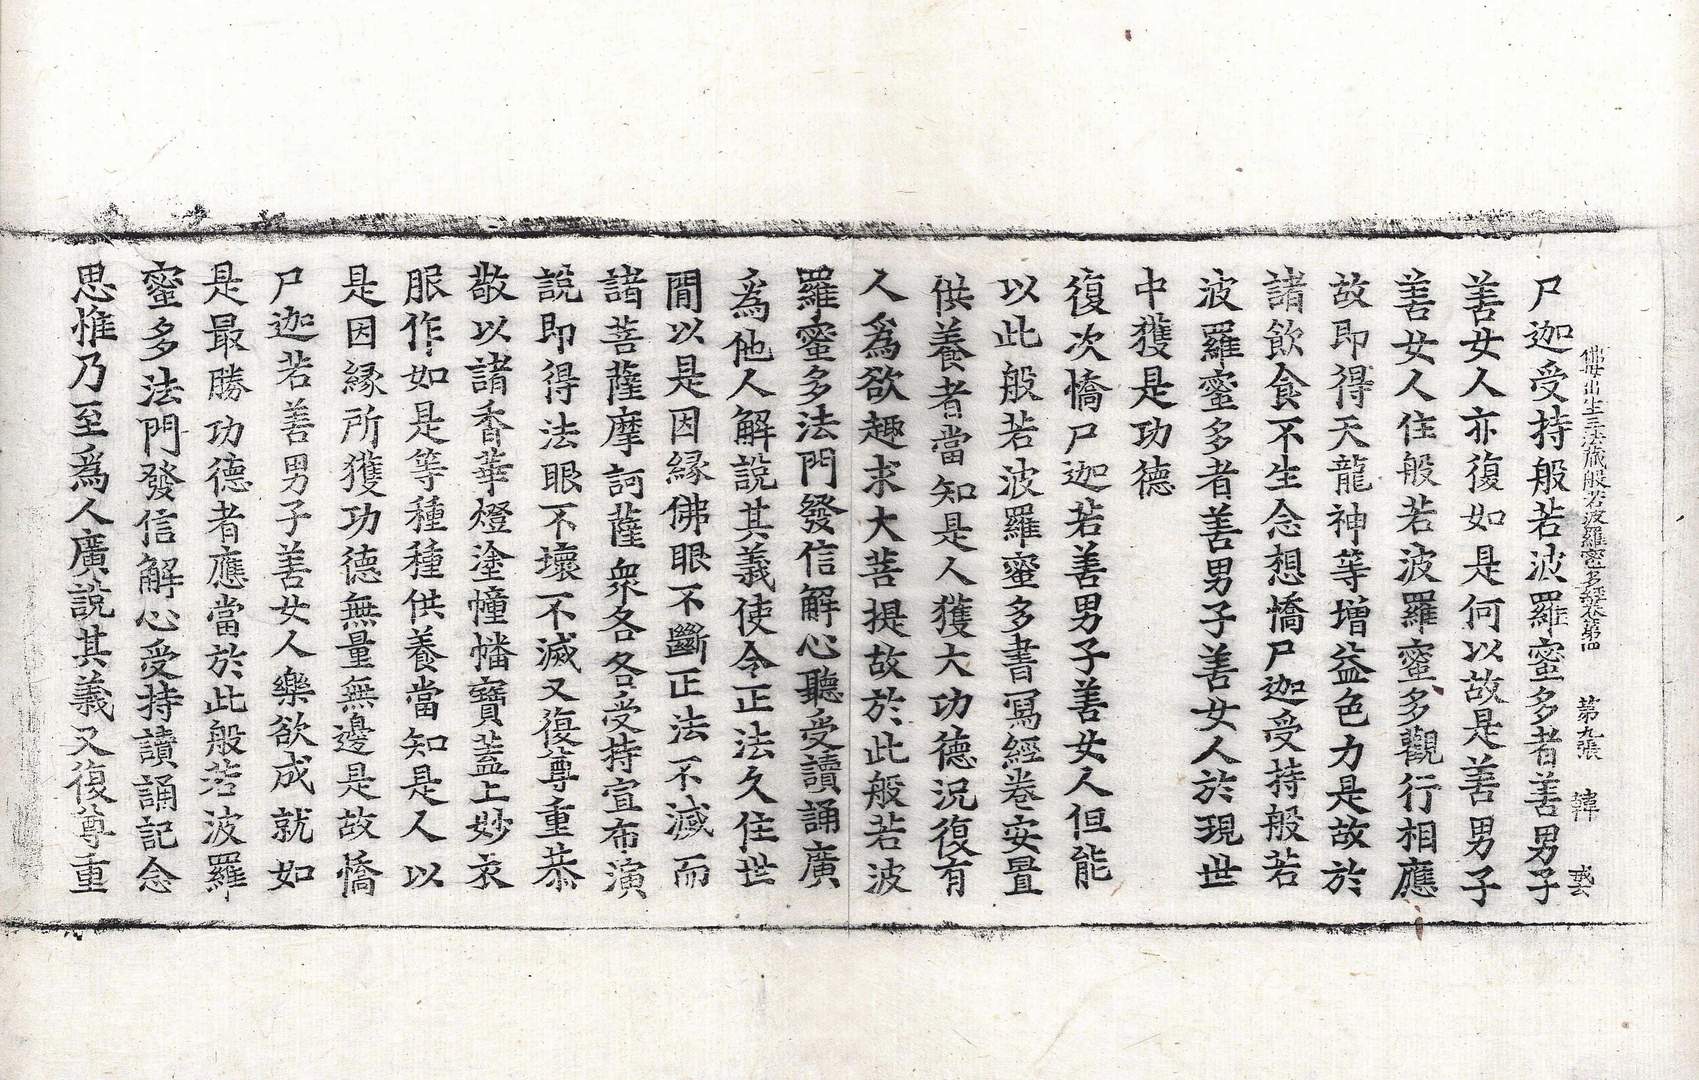 佛母出生三法藏般若波羅蜜多經卷第四 第九張 韓
尸迦受持般若波羅蜜多者善男子
善女人亦復如是何以故是善男子
善女人住般若波羅蜜多觀行相應
故即得天龍神等增益色力是故於
諸飲食不生念想憍尸迦受持般若
波羅蜜多者善男子善女人於現世
中獲是功德
復次憍尸迦若善男子善女人但能
以此般若波羅蜜多書寫經卷安置
供養者當知是人獲大功德況復有
人為欲趣求大菩提故於此般若波
羅蜜多法門發信解心聽受讀誦廣
為他人解說其義使令正法久住世
間以是因緣佛眼不斷正法不滅而
諸菩薩摩訶薩衆各各受持宣布演
說即得法眼不壞不滅又復尊重恭
敬以諸香華燈塗幢幡寶蓋上妙衣
服作如是等種種供養當知是人以
是因緣所獲功德無量無邊是故憍
尸迦若善男子善女人樂欲成就如
是最勝功德者應當於此般若波羅
蜜多法門發信解心受持讀誦記念
思惟乃至為人廣說其義又復尊重